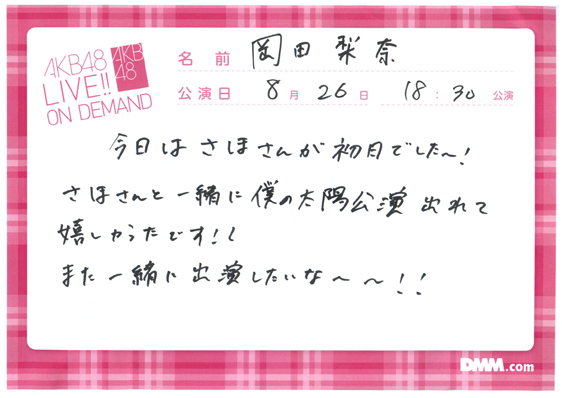 AKB48
LIVE!!
ON DEMAND
AKB
48
名前 岡田梨奈
公演日 8月26日 18:30公演
今日はさほさんが初日でした〜!
さほさんと一緒に僕の太陽公演出れて
嬉しかったです!!
また一緒に出演したいな〜〜!!
DMM.com